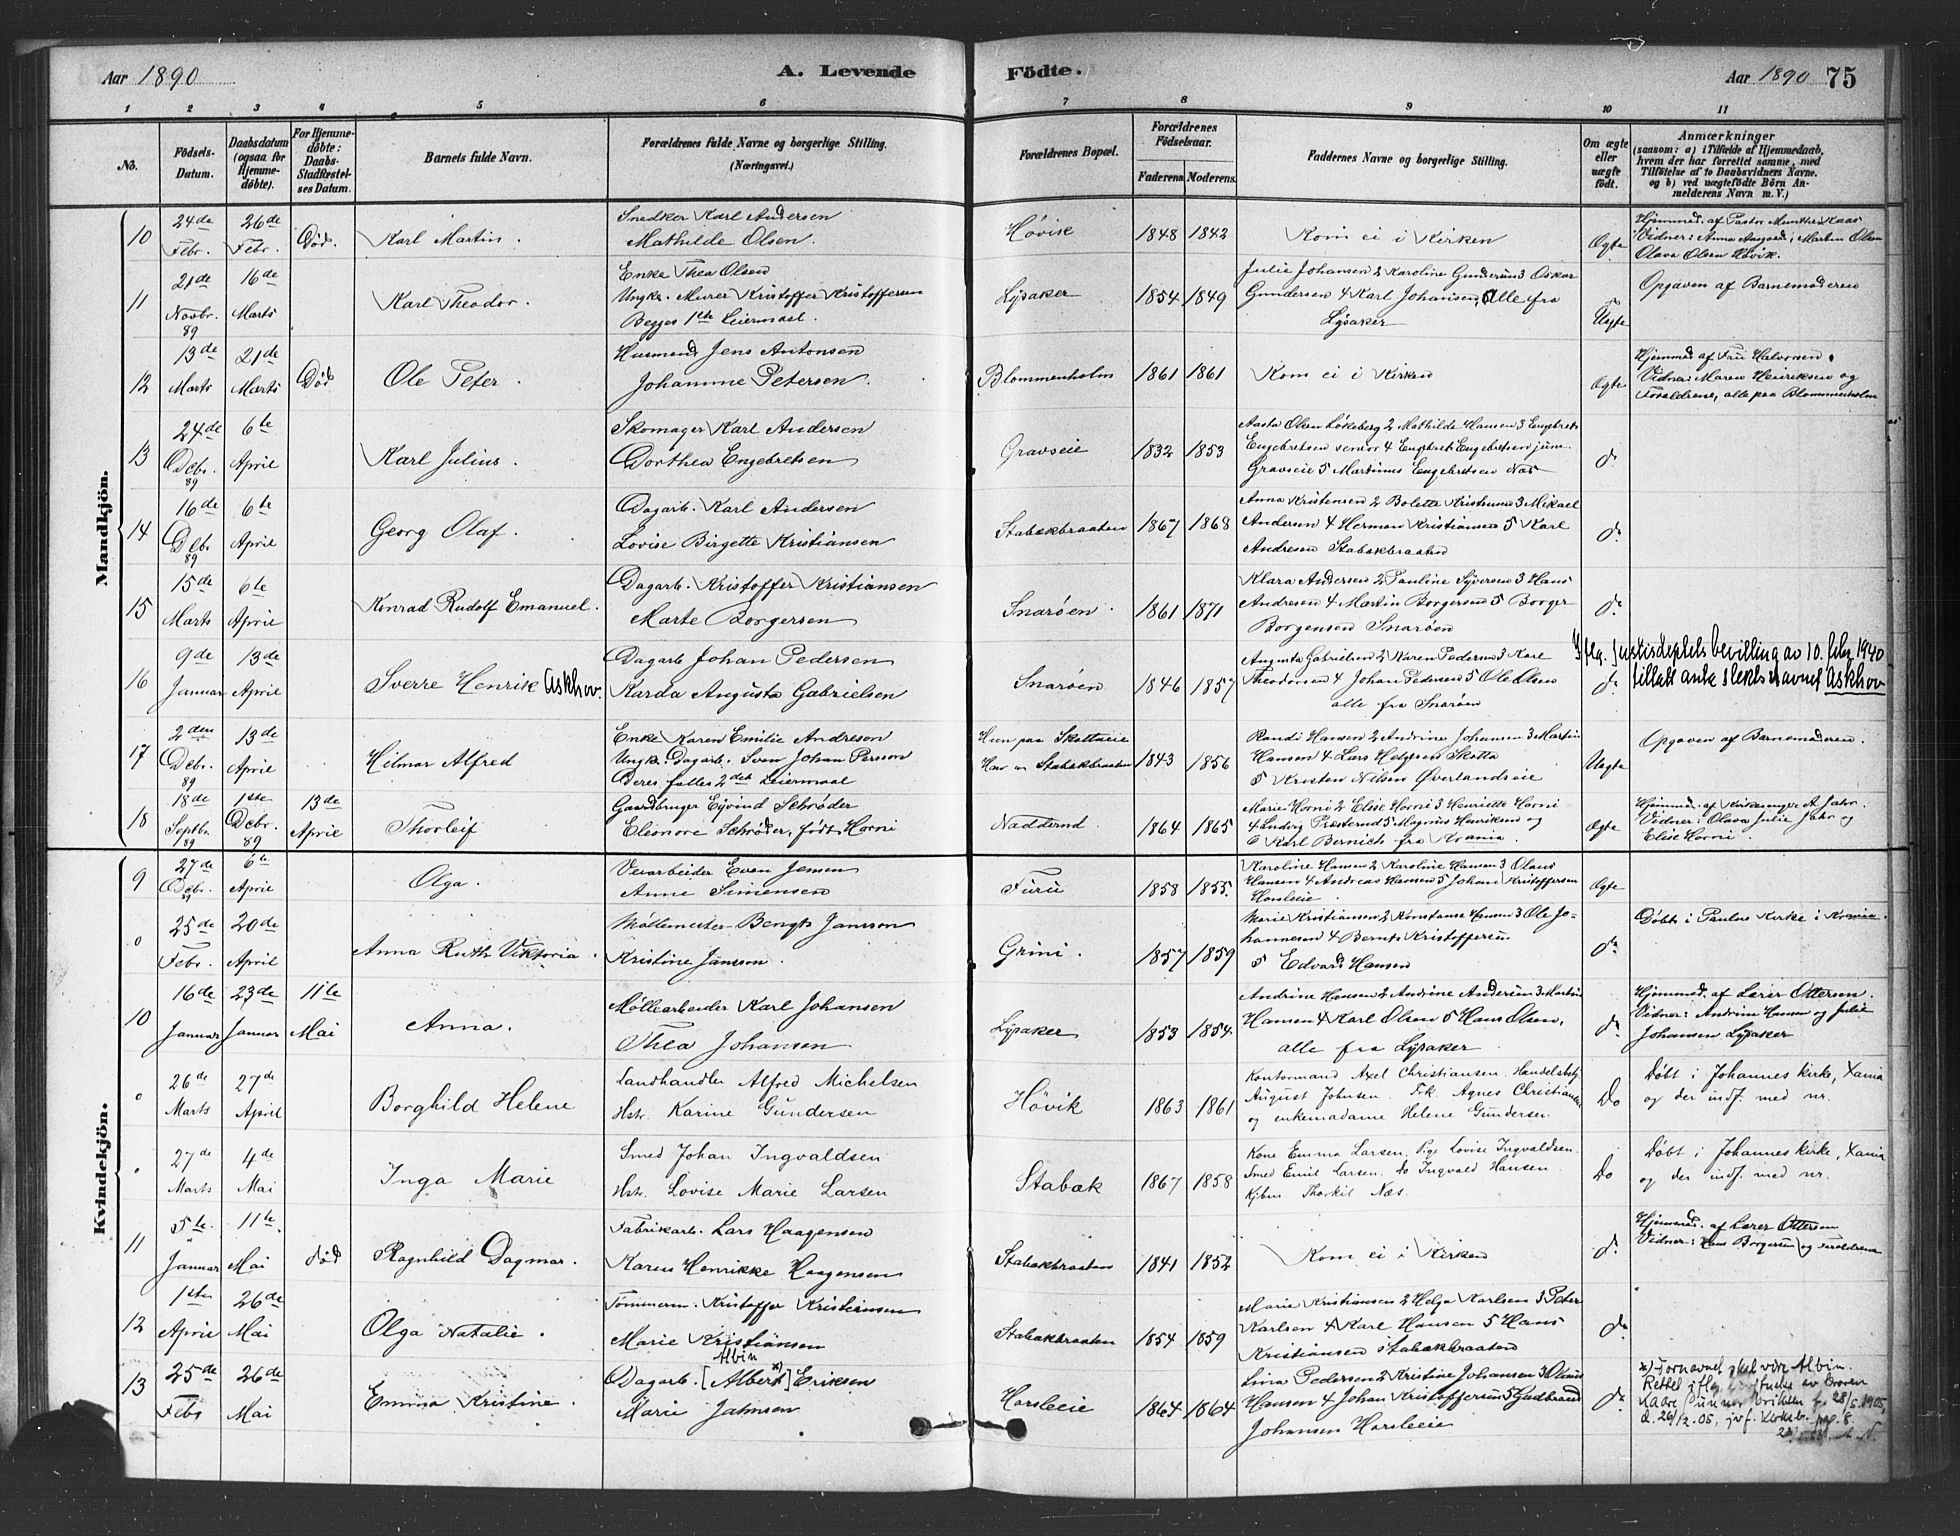 Aar 1890
A. Levende
Födte.
Aar 1890 75
1 2 3 4 5 6 7 8 9 10 11
No.
Födsels-Datum.
Daabsdatum (ogsaa for Hjemmedöbte).
For Hjemmedöbte: Daabs-Stadfæstelses Datum.
Barnets fulde Navn.
Forældrenes fulde Navne og borgerlige Stilling.
(Næringsvei.)
Forældrenes Bopæl.
Forældrenes Födselsaar.
Faderens. Moderens.
Faddernes Navne og borgerlige Stilling.
Om ægte eller uægte födt.
Anmærkninger
(saasom: a) i Tilfælde af Hjemmedaab,
hvem der har forrettet samme, med
Tilföielse af to Daabsvidners Navne,
og b) ved uægtefödte Börn An-
melderens Navn m. V.)
Mandkjön.
10 24de Febr. 26de Febr. Död. Karl Martin.
Snedker Karl Andersen
Mathilde Olsen.
Høvik 1848 1842 Kom ei i Kirken Ægte
Hjemmed. af Pastor Munthe Kaas
Vidner: Anna Aagaard, Martin Olsen
Olava Olsen Høvik.
11 21de Novbr. 89 16de Marts Karl Theodor.
Enke Thea Olsen
Ungk. Murer Kristoffer Kristoffersen
Begges 1ste Leiermaal.
Lysaker 1854 1849
Julie Johansen 2 Karoline Gundersen 3 Oskar
Gundersen 4 Karl Johansen, Alle fra
Lysaker
Uægte
Opgaven af Barnemoderen
12 13de Marts 21de Marts Död Ole Peter.
Husmand Jens Antonsen
Johanne Petersen.
Blommenholm 1861 1861 Kom ei i Kirken Ægte
Hjemmed af Fru Halvorsen.
Vidner: Maren Henriksen og
Forældrene, alle paa Blommenholm
13 24de Debr. 89 6te April Karl Julius.
Skomager Karl Andersen
Dorthea Engebretsen
Gravseie 1832 1853
Aasta Olsen Løkeberg 2 Mathilde Hansen 3 Engebret
Engebretsen senior 4 Engebret Engebretsen jun.
Gravseie 5 Martinus Engebretsen Næs
do
14 16de Debr. 89 6te April Georg Olaf.
Dagarb. Karl Andersen
Lovise Birgette Kristiansen
Stabækbraaten 1867 1868
Anna Kristensen 2 Bolette Kristensen 3 Mikael
Andersen 4 Herman Kristiansen 5 Karl
Andresen Stabækbraaten
do
15 15de Marts 6te April Konrad Rudolf Emanuel.
Dagarb. Kristoffer Kristiansen
Marte Borgersen
Snarøen. 1861 1871
Klara Andersen 2 Pauline Syversen 3 Hans
Andresen 4 Martin Borgersen 5 Borger
Borgensen Snarøen
do
16 9de Januar 13de April Sverre Henrik Askhov.
Dagarb Johan Pedersen
Karda Augusta Gabrielsen
Snarøen 1846 1857
Augusta Gabrielsen 2 Karen Pedersen 3 Karl
Theodorsen 4 Johan Pedersen 5 Ole Olsen
alle fra Snarøen
do
Iflg. Justisdeptets bevilling av 10. febr 1940
tillatt anta slektsnavnet Askhov
17 2den Debr. 89 13de April Hilmar Alfred
Enke Karen Emilie Andreson
Ungk. Dagarb. Sven Johan Persson
Deres fælles 2det Leiermaal
Hun paa Skottaeie
Han - Stabækbraaten 1843 1856
Randi Hansen 2 Andrine Johansen 3 Martin
Hansen 4 Lars Helgesen Skotta
5 Kristen Nilsen Øverlandseie
Uægte
Opgaven af Barnemoderen.
18 18de Septbr. 89 1ste Debr. 89 13de April Thorleif
Gaardbruger Eyvind Schrøder
Eleonore Schrøder, født Horni
Nadderud. 1864 1865
Marie Horni 2 Elise Horni 3 Henriette Horni
4 Ludvig Præsterud 5 Magnus Henriksen og
6 Karl Bernich fra Krania
Ægte
Hjemmed. af Kirkesanger A Jahr.
Vidner: Olava Julie Jahr og
Elise Horni.
Kvindekjön.
9 27de Debr. 89 6te April Olga.
Veiarbeider Even Jensen
Anne Simensen
Furu 1858 1855.
Karoline Hansen 2 Karoline Hansen 3 Olaus
Hansen 4 Andreas Hansen 5 Johan Kristoffersen
Horsleeie
Ægte
0 25de Febr. 20de April Anna Ruth Viktoria.
Møllemester Bengt Jansson
Kristine Jansson.
Grini. 1857 1859
Marie Kristiansen 2 Konstanse Hansen 3 Ole Jo-
hannesen 4 Bernt Kristoffersen
5 Edvard Hansen
do
Döbt i Paulus Kirke i Krania.
10 16de Januar 23de Januar 11te Mai Anna.
Møllearbeider Karl Johansen
Thea Johansen
Lysaker 1853 1854
Andrine Hansen 2 Andrine Andersen 3 Martin
Hansen 4 Karl Olsen 5 Hans Olsen,
alle fra Lysaker
do
Hjemmed. af Lærer Ottersen.
Vidner: Andrine Hansen og Julie
Johansen Lysaker
0 26de Marts 27de April Borghild Helene
Landhandler Alfred Michelsen
Hstr. Karine Gundersen
Høvik 1863 1861
Kontormand Axel Christiansen. Handelsbetj
August Johnsen. Frk Agnes Christiansen
og enkemadame Helene Gundersen
Do
Döbt i Johannes kirke, Xania
og der indf. med nr.
0 27de Marts 4de Mai Inga Marie
Smed Johan Ingvaldsen
Hstr. Lovise Marie Larsen
Stabæk 1867 1858
Kone Emma Larsen. Pige Lovise Ingvaldsen.
Smed Emil Larsen. Do Ingvald Hansen.
Kjbm. Thorkil Næs.
Do
Döbt i Johannes kirke, Xania
og der indf. med nr.
11 5te Januar 11te Mai död Ragnhild Dagmar.
Fabrikarb. Lars Haagensen
Karen Henrikke Haagensen
Stabækbraaten 1841 1852 Kom ei i Kirken do
Hjemmed. af Lærer Ottersen
Vidner: Hans Borgersen og Forældrene
12 1ste April 26de Mai Olga Natalie.
Tømmerm. Kristoffer Kristiansen
Marie Kristiansen
Stabækbraaten 1854 1859
Marie Kristiansen 2 Helga Karlsen 3 Peter
Karlsen 4 Karl Hansen 5 Hans
Kristiansen Stabækbraaten
do
13 25de Febr 26de Mai Emma Kristine.
Albin
Dagarb. [Albert x)] Eriksen
Marie Jahnsen
Horsleeie 1864 1864
Lina Pedersen 2 Kristine Johansen 3 Olaus
Hansen 4 Johan Kristoffersen 5 Gudbrand
Johansen Horsleeie
do
x) Fornavnet skal være Albin.
Rettet iflg.
28/5 1905,
d. 26/12.05, jvf. Kirkeb. pag. 8.